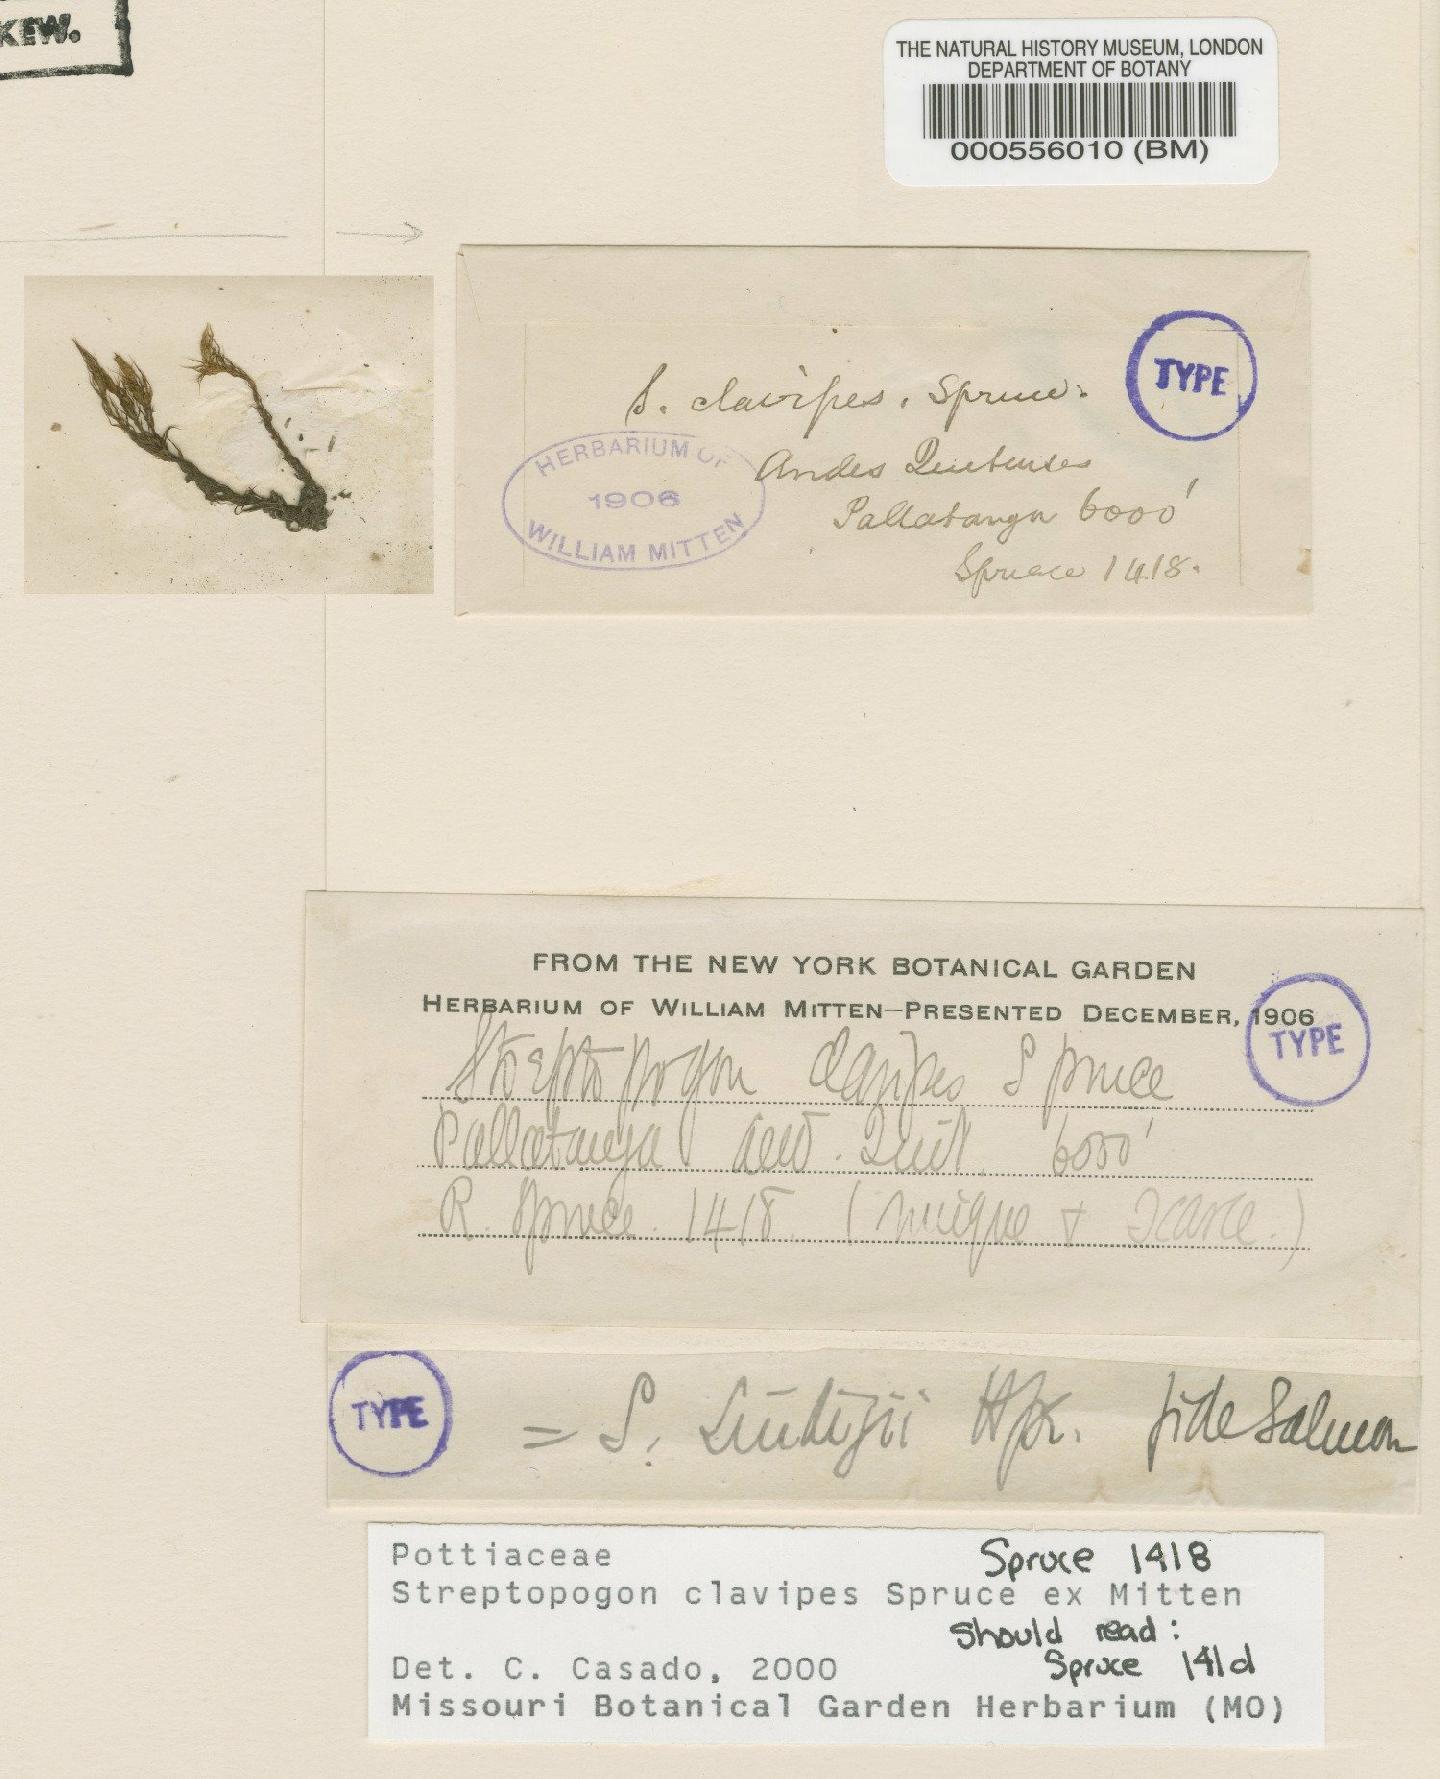 KEW.
THE NATURAL HISTORY MUSEUM, LONDON
DEPARTMENT OF BOTANY
000556010 (BM)
TYPE
S. clavipes. Spruce.
HERBARIUM OF
1906
WILLIAM MITTEN
Andes Quitenses
Pallatanga 6000'
Spruce 1418.
FROM THE NEW YORK BOTANICAL GARDEN
HERBARIUM OF WILLIAM MITTEN—PRESENTED DECEMBER, 1906
TYPE
Streptopogon clavipes Spruce
Pallatanga And. Quit. 6000'
R. Spruce. 1418. (unique & scarce.)
TYPE
= S. Lindigii Hpe. fide Salmon
Pottiaceae Spruce 1418
Streptopogon clavipes Spruce ex Mitten
Should read:
Spruce 141d
Det. C. Casado, 2000
Missouri Botanical Garden Herbarium (MO)